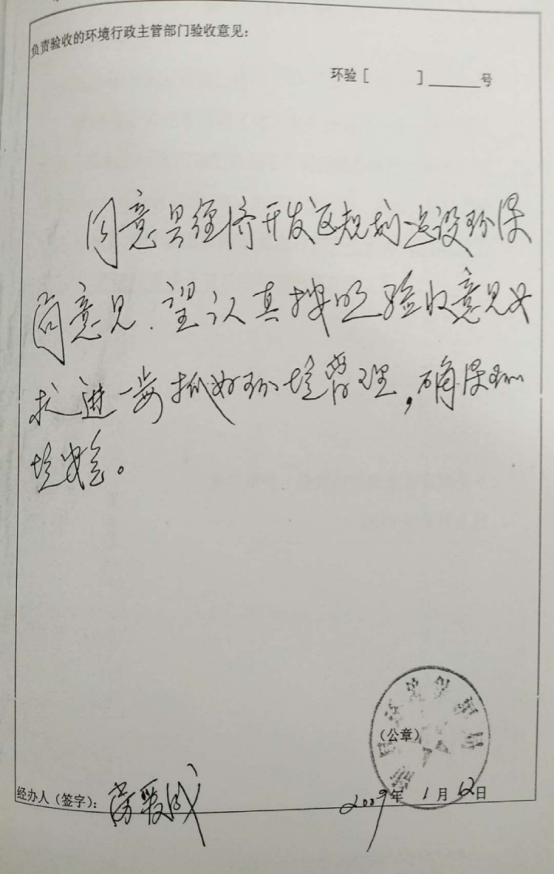 负责验收的环境行政主管部门验收意见:
环验[ ]______号
同意县经济开发区规划建设环保
局意见.望认真按照验收意见要
求进一步抓好环境管理,确保环
境安全。
(公章)
经办人(签字):
2009年1月12日